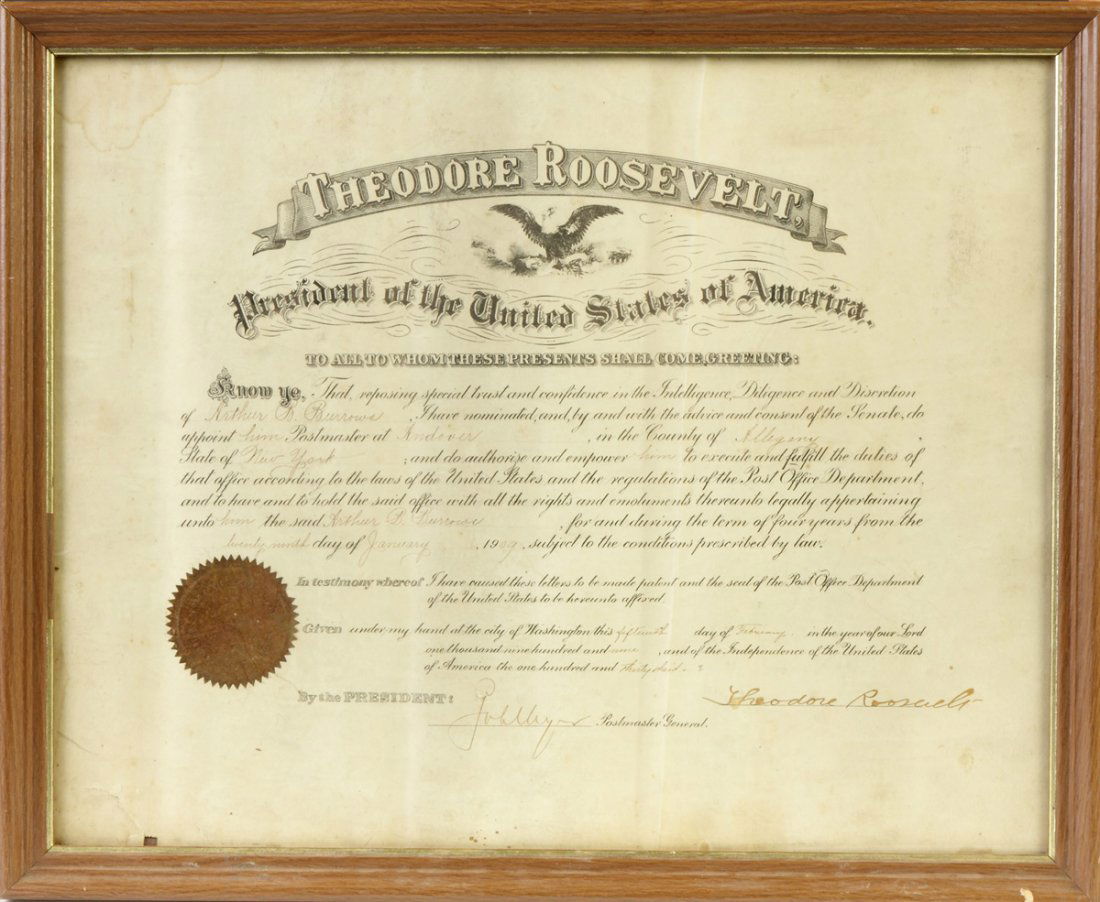 THEODORE ROOSEVELT,
President of the United States of America.
TO ALL TO WHOM THESE PRESENTS SHALL COME, GREETING:
Know ye, That, reposing special trust and confidence in the Intelligence, Diligence and Discretion
of Arthur B. Burrows, I have nominated, and, by and with the advice and consent of the Senate, do
appoint him Postmaster at Andover, in the County of Allegany,
State of New York; and do authorize and empower him to execute and fulfill the duties of
that office according to the laws of the United States and the regulations of the Post Office Department,
and to have and to hold the said office with all the rights and emoluments thereunto legally appertaining
unto him the said Arthur B. Burrows, for and during the term of four years from the
twenty ninth day of January, 1909, subject to the conditions prescribed by law.
In testimony whereof I have caused these letters to be made patent and the seal of the Post Office Department
of the United States to be hereunto affixed.
Given under my hand at the city of Washington this fifteenth day of February in the year of our Lord
one thousand nine hundred and nine, and of the Independence of the United States
of America the one hundred and thirty third.
By the PRESIDENT:
Theodore Roosevelt
Postmaster General.